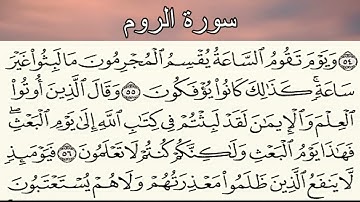 سورة الروم
٥٤ وَيَوْمَ تَقُومُ السَّاعَةُ يُقْسِمُ الْمُجْرِمُونَ مَا لَبِثُوا۟ غَيْرَ
سَاعَةٍ ۚ كَذَٰلِكَ كَانُوا۟ يُؤْفَكُونَ ٥٥ وَقَالَ الَّذِينَ أُوتُوا۟
الْعِلْمَ وَالْإِيمَٰنَ لَقَدْ لَبِثْتُمْ فِى كِتَٰبِ اللَّهِ إِلَىٰ يَوْمِ الْبَعْثِ ۖ
فَهَٰذَا يَوْمُ الْبَعْثِ وَلَٰكِنَّكُمْ كُنتُمْ لَا تَعْلَمُونَ ٥٦ فَيَوْمَئِذٍ
لَّا يَنفَعُ الَّذِينَ ظَلَمُوا۟ مَعْذِرَتُهُمْ وَلَا هُمْ يُسْتَعْتَبُونَ